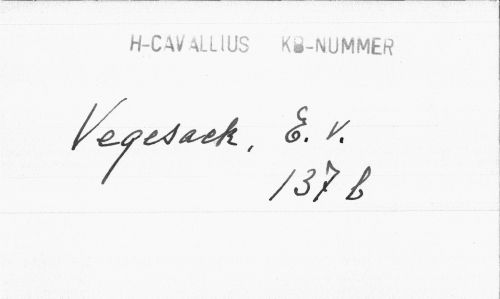 H-CAVALLIUS KB-NUMMER
Vegesack, E. v.
137 b